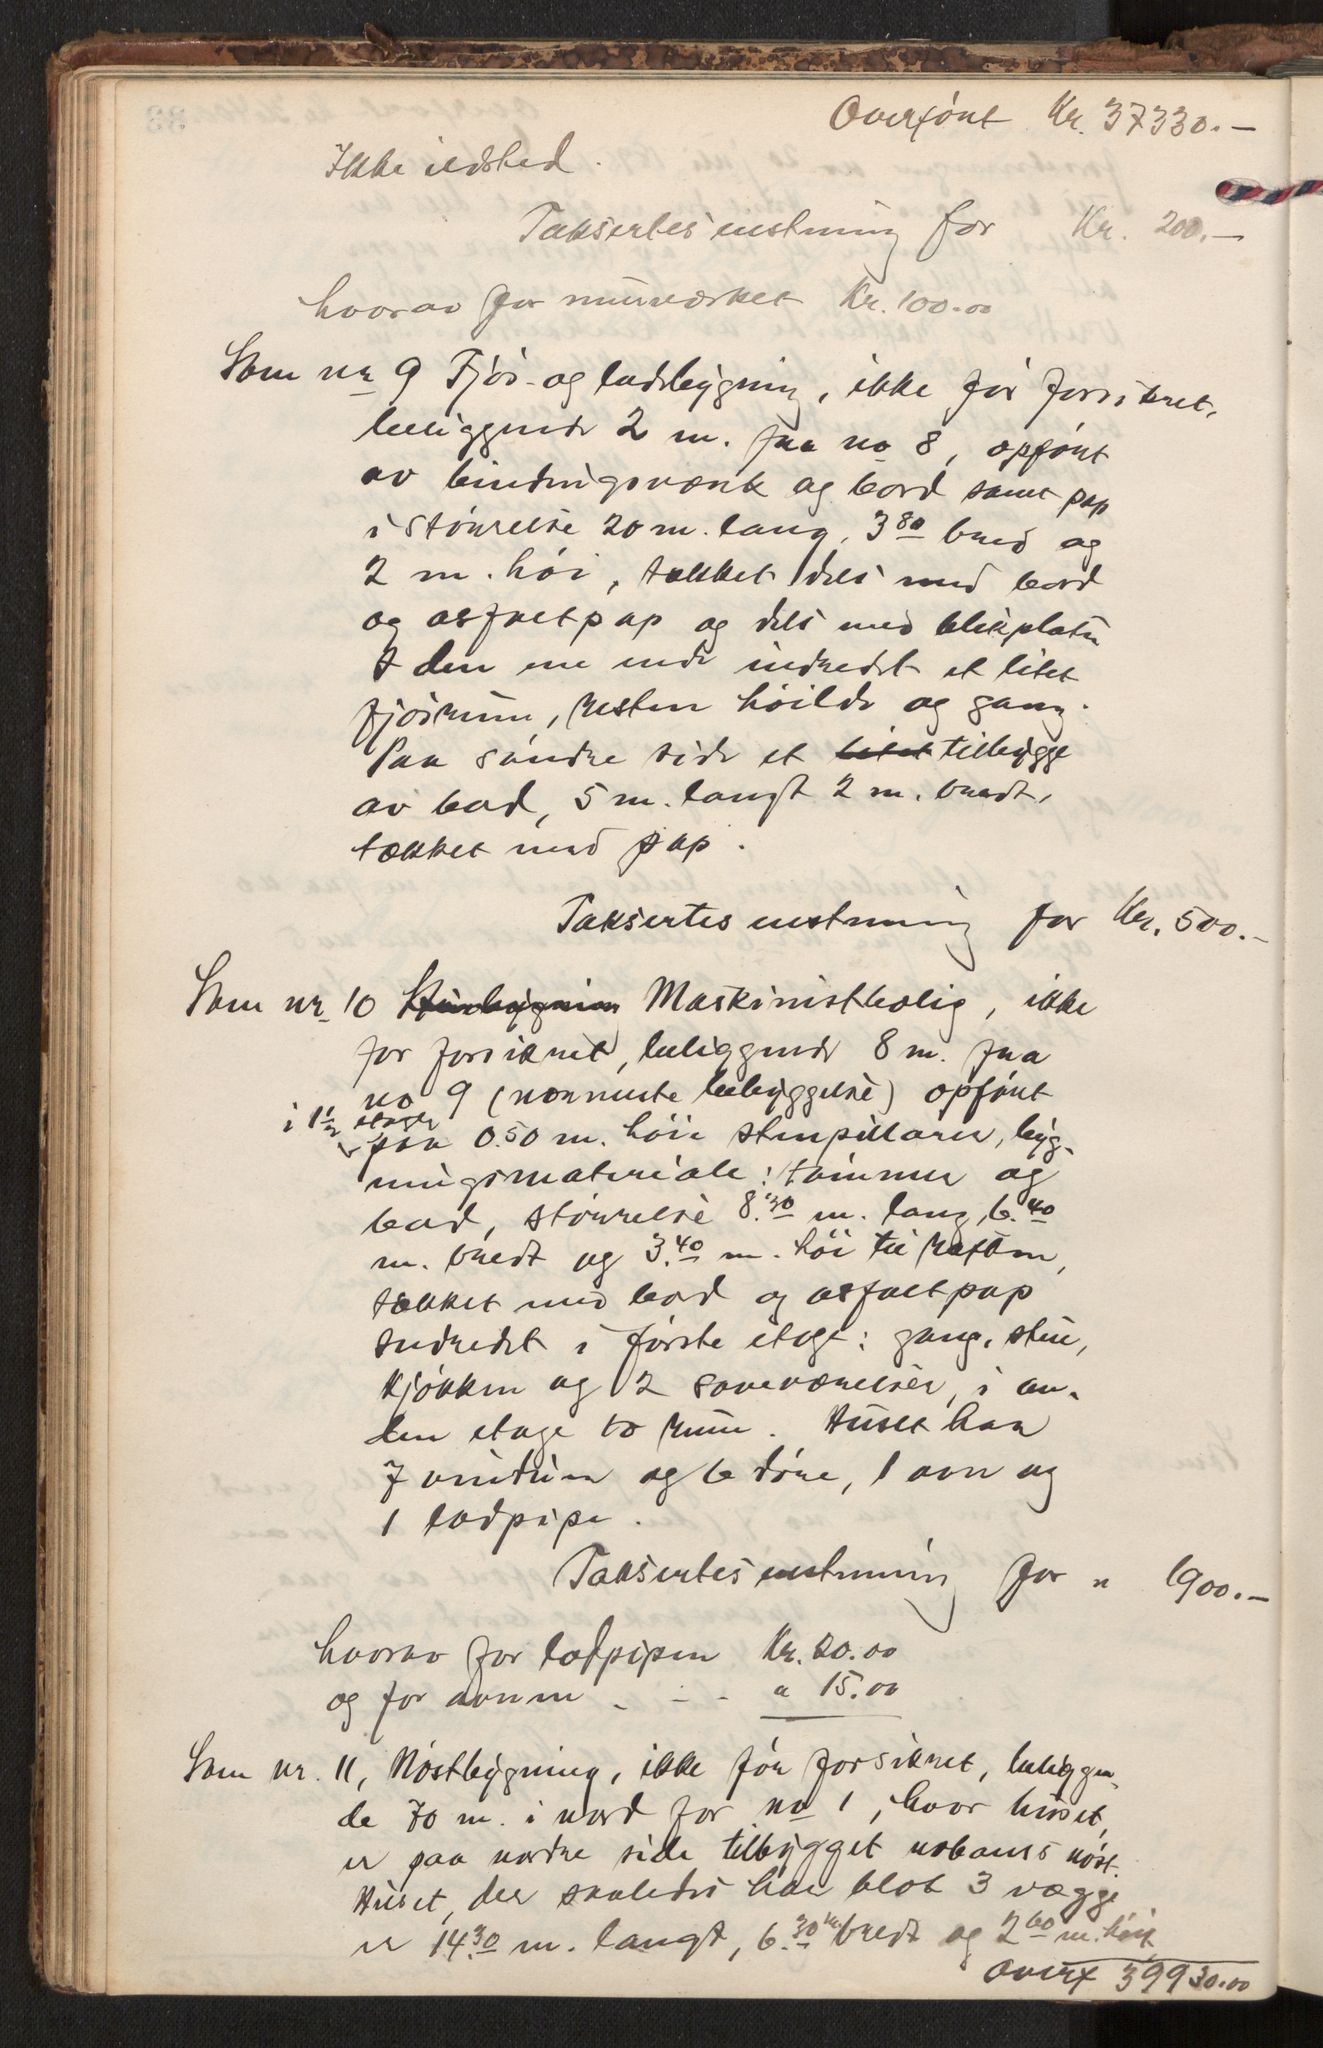 Overført Kr. 37330.—
Ikke ildsted.
Taksertes enstemmig for Kr. 200.—
hvorav for murverket Kr. 100.00
Som nr 9 Fjøs- og ladebygning, ikke før forsikret,
beliggende 2 m. fra no 8, opført
av bindingsverk og bord samt pap
i størrelse 20 m. lang, 3 80 bred og
2 m. høi, tækket dels med bord
og asfaltpap og dels med blikplater
I den ene ende indredet et litet
fjøsrum, resten høilde og gang.
Paa søndre side et litet tilbygg
av bord, 5 m. langt 2 m. bredt,
tækket med pap.
Taksertes enstemmig for Kr. 500.—
Som nr 10 Stuebygning Maskinistbolig, ikke
før forsikret, beliggende 8 m. fra
no 9 (nærmeste bebyggelse) opført
i 1½ etage
paa 0.50 m. høie stenpillarer, byg-
ningsmateriale: tømmer og
bord, størrelse 8.30 m. lang, 6.40
m. bredt og 3.40 m. høi til raften,
tækket med bord og asfaltpap
Indredet i første etage: gang, stue,
kjøkken og 2 soveværelser, i an-
den etage to rum. Huset har
7 vinduer og 6 døre, 1 ovn og
1 lodpipe.
Taksertes enstemmig for " 1900.—
hvorav for lodpipen Kr. 80.00
og for ovnen - - - " 15.00
Som nr. 11, Nøstbygning, ikke før forsikret, beliggen-
de 70 m. i nord for no 1, hvor huset,
er paa nordre side tilbygget naboens nøst.
Huset, der saaledes har blot 3 vægge
er 14.30 m. langt, 6.30 m bredt og 2 60 m. høit
Overf 39930.00